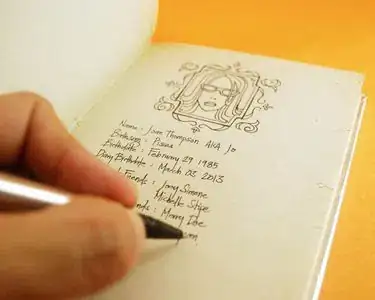 Name : Jane Thompson AKA Jo
Birthsign : Pisces
Birthdate : February 29 1985
Diary Birthdate : March 03 2013
Friends : Jony Simone
Michelle Stipe
: Merry Doe